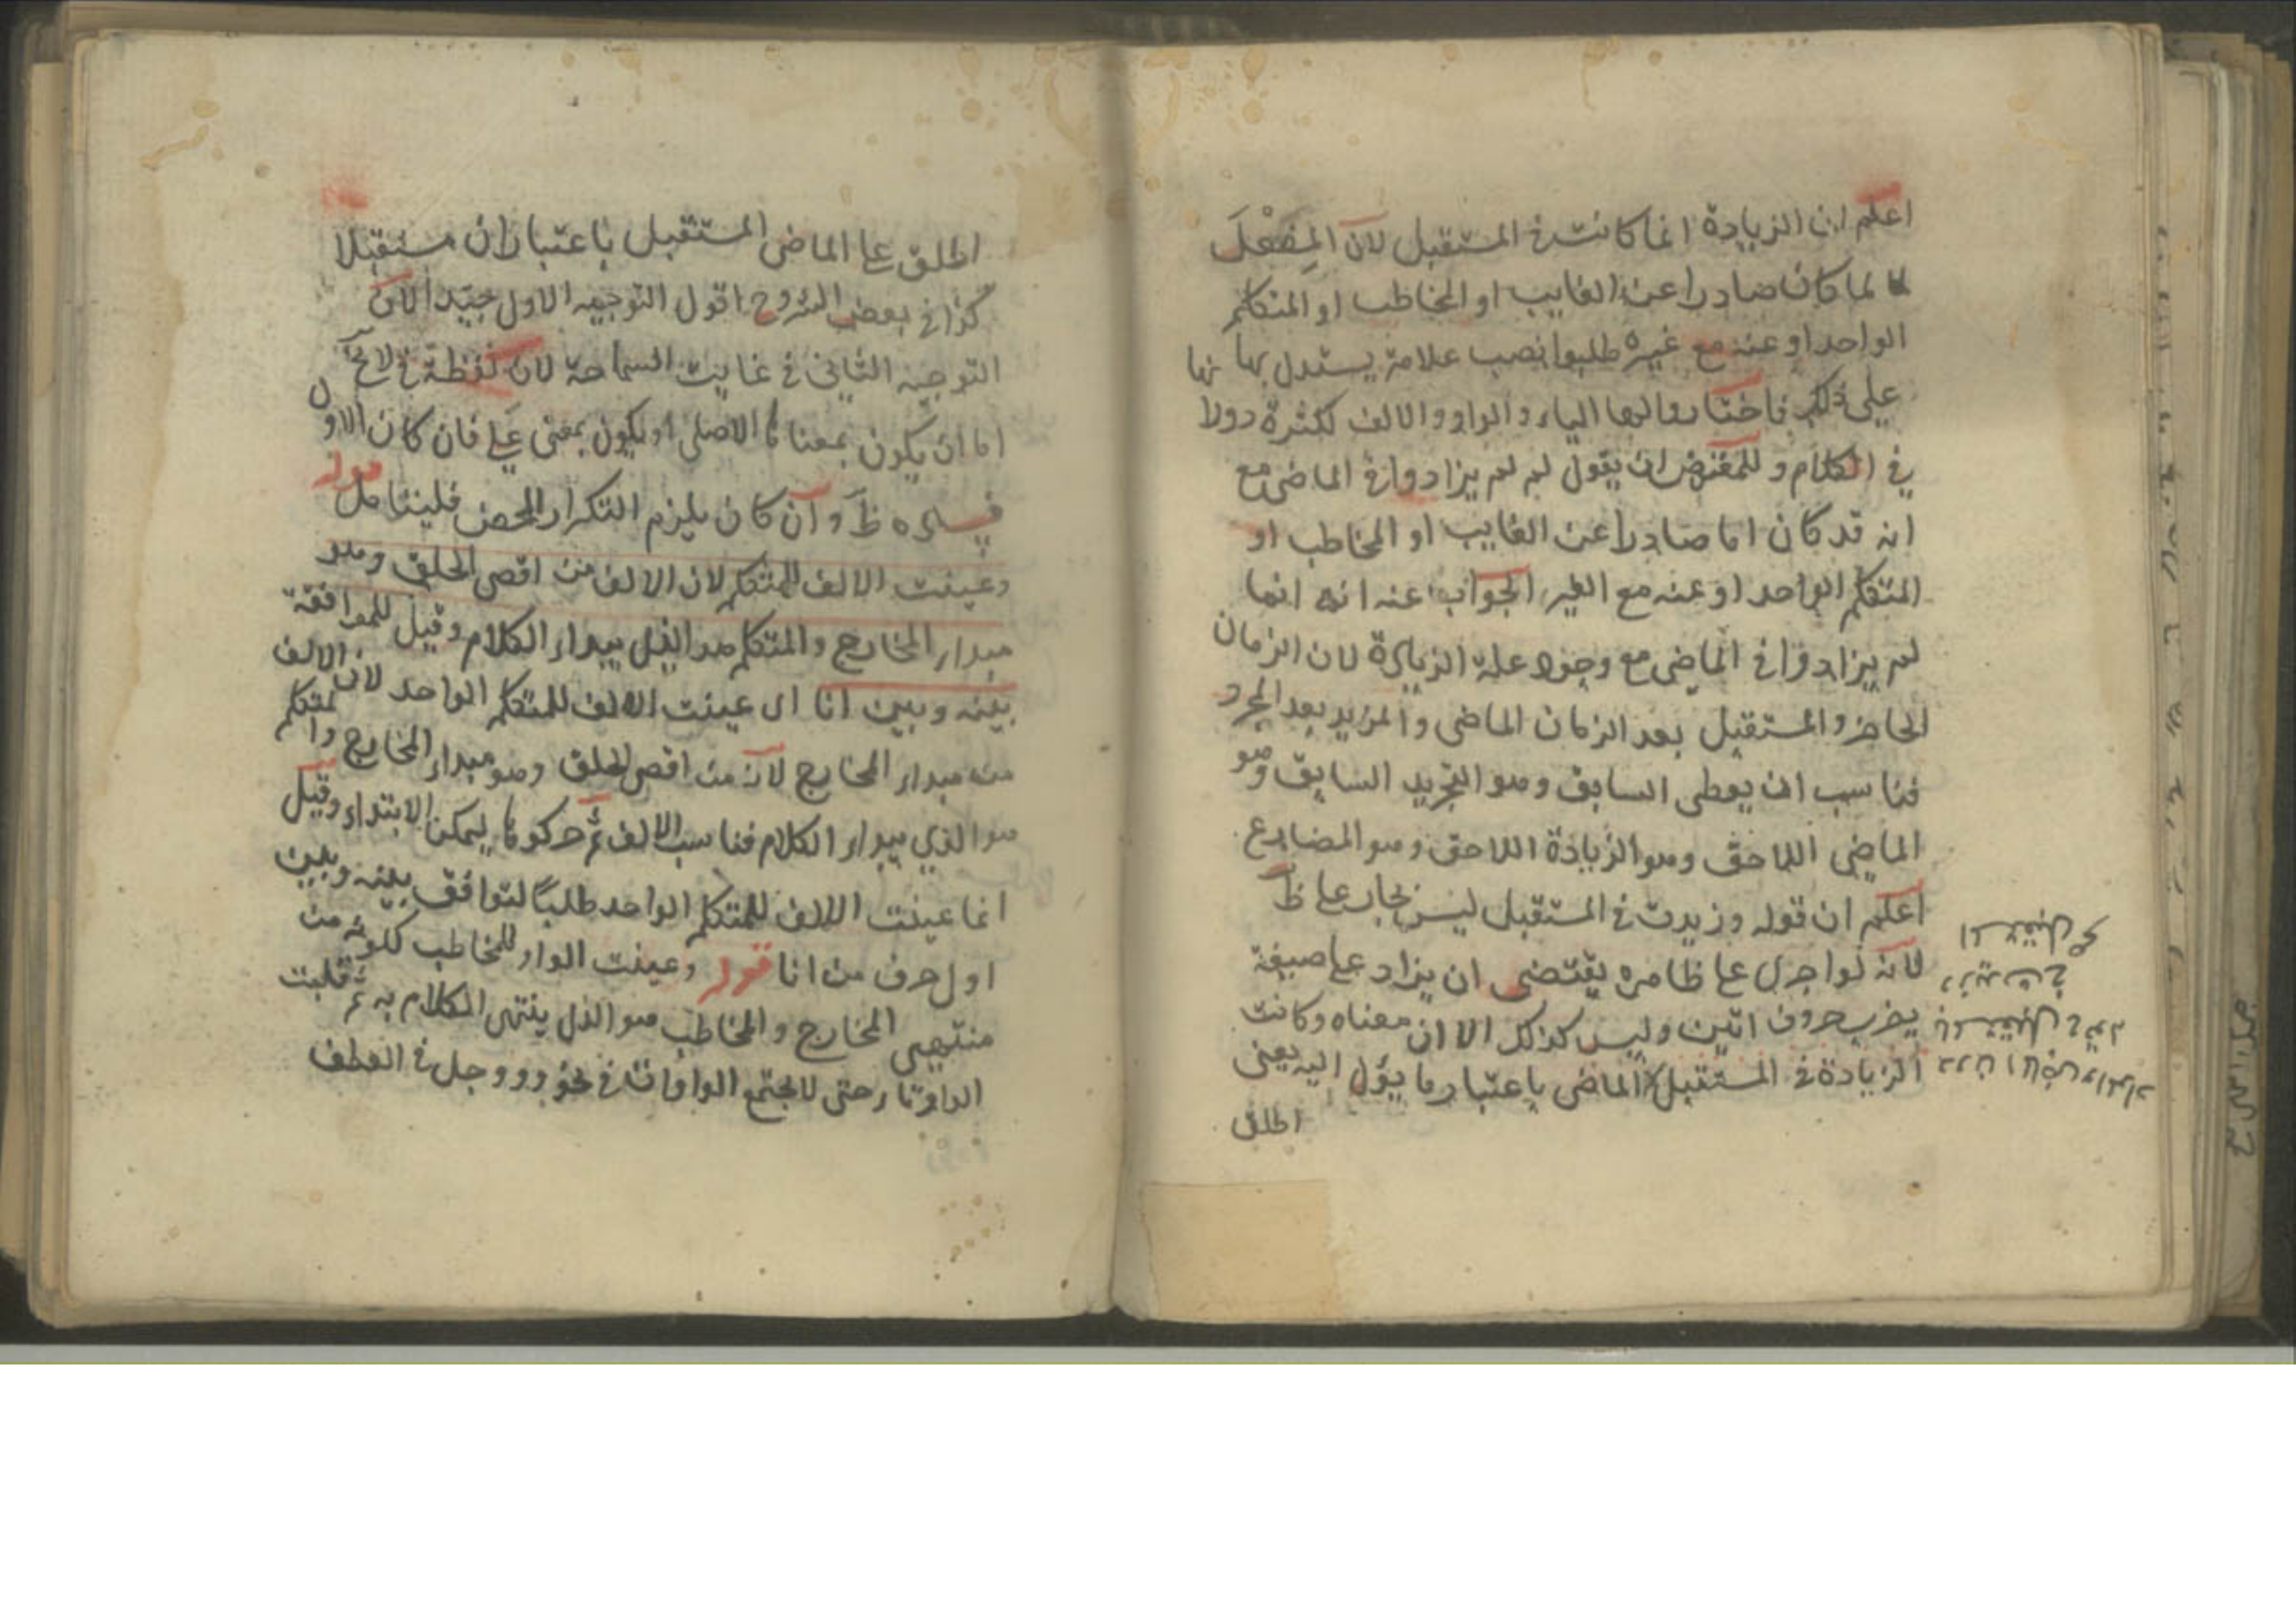 اعلم ان الزيادة انما كانت في المستقبل لان الفعل
لما كان صادرا عن الغايب او المخاطب او المتكلم
الواحد او عنه مع غيره طلبوا نصب علامة يستدل بها
على ذلك فاختاروا لها الياء والواو والالف لكثرة دورانها
في الكلام وللمعترض ان يقول لم لم يزادوا في الماضي مع
انه قد كان اما صادرا عن الغايب او المخاطب او
المتكلم الواحد او عنه مع الغير الجواب عنه انه انما
لم يزادوا في الماضي مع وجود علة الزيادة لان الزمان
الحاضر والمستقبل بعد الزمان الماضي والمزيد بعد المجرد
فناسب ان يعطى السابق وهو التجريد السابق وهو
الماضي اللاحق وهو الزيادة اللاحق وهو المضارع
اعلم ان قوله وزيدت في المستقبل ليس بجار على ظ
لانه لو اجرى على ظاهره يقتضى ان يزاد على صيغة
يضرب حروف اتين وليس كذلك الا ان معناه وكانت
الزيادة في المستقبل الماضى باعتبار ما يؤل اليه يعنى
اطلق
اطلق على الماضى المستقبل باعتبار ان مستقبلا
كذا في بعض الشروح اقول التوجيه الاول جيد الا ان
التوجيه الثاني في غايت السماحة لان لفظة في لا يخ
اما ان يكون بمعناها الاصلى او يكون بمعنى على فان كان الاول
فساده ظ وان كان يلزم التكرار المحض فليتامل قوله
وعينت الالف للمتكلم لان الالف من اقصى الحلق وهو
مبداء المخارج والمتكلم هو الذى يبداء الكلام وقيل للموافقة
بينه وبين انا اى عينت الالف للمتكلم الواحد لان الالف
من مبداء المخارج لانه من اقصى الحلق وهو مبداء المخارج والمتكلم
هو الذي يبداء الكلام فناسب الالف ثم حركوها ليمكن الابتداء وقيل
انما عينت الالف للمتكلم الواحد طلبا لتوافق بينه وبين
اول حرف من انا قوله وعينت الواو للمخاطب لكونه من
منتهى المخارج والمخاطب هو الذى ينتهى الكلام به ثم قلبت
الواو تاء حتى لا يجتمع الواوات في نحو وووجل في العطف